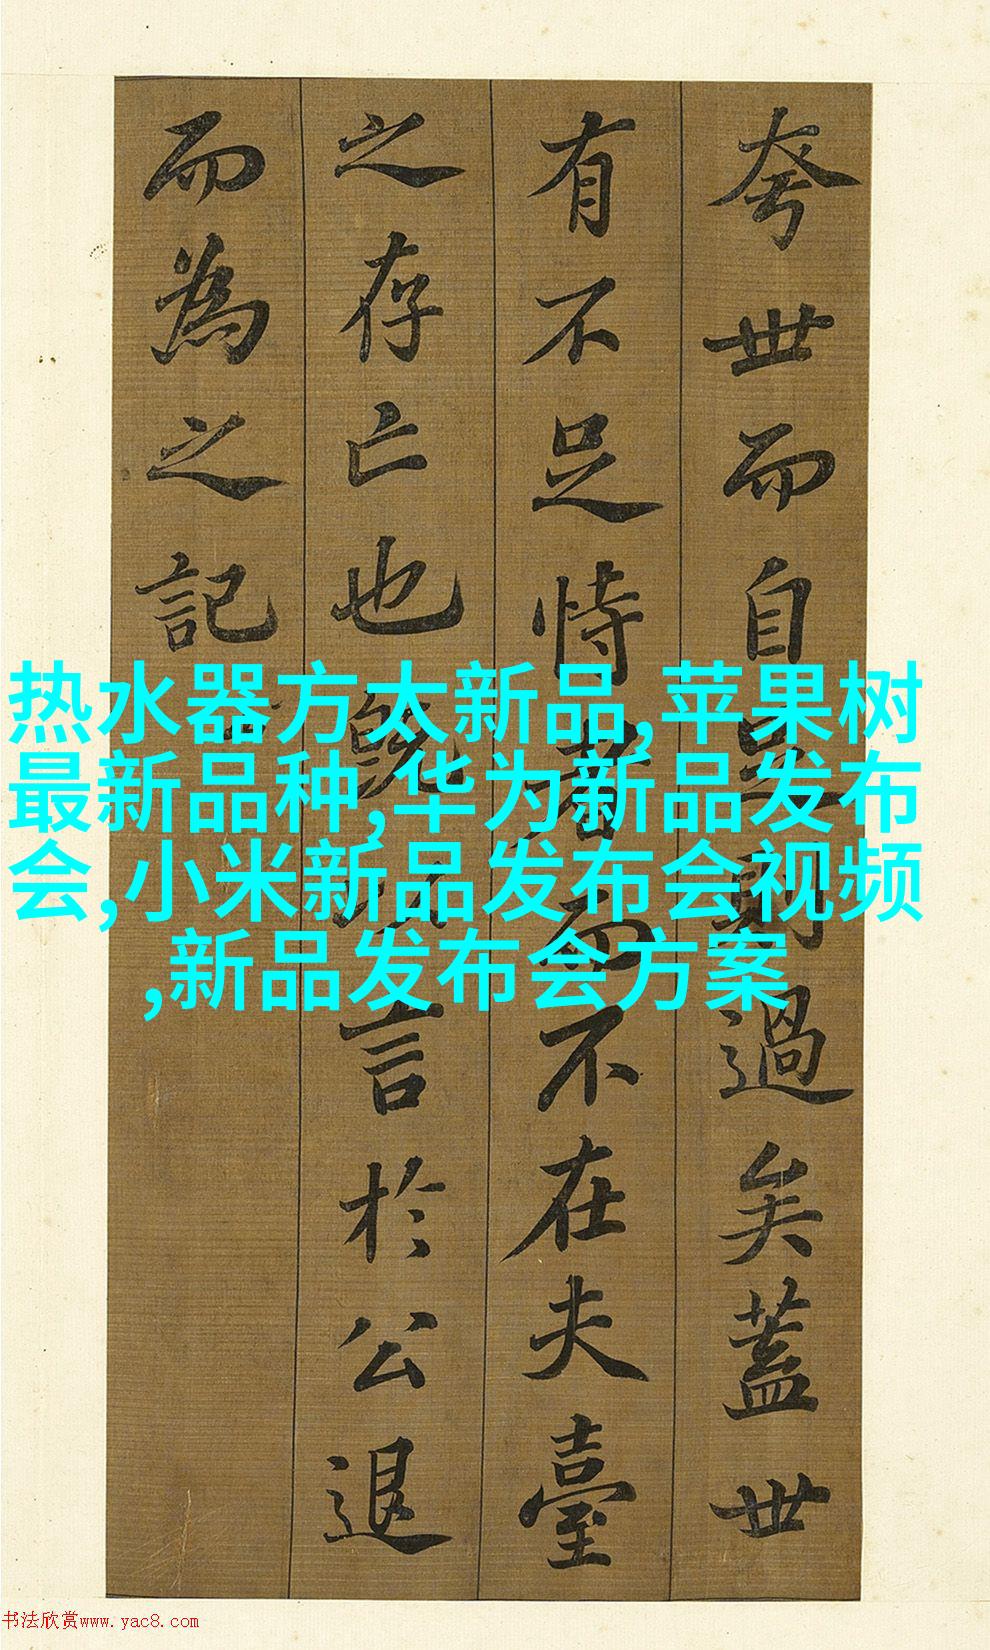 夸世而自足則過矣蓋世
有不足恃者而不在夫臺
之存亡也既以言於公退
而為之記
热水器方太新品,苹果树
最新品种,华为新品发布
会,小米新品发布会视频
,新品发布会方案
书法欣赏www.yac8.com